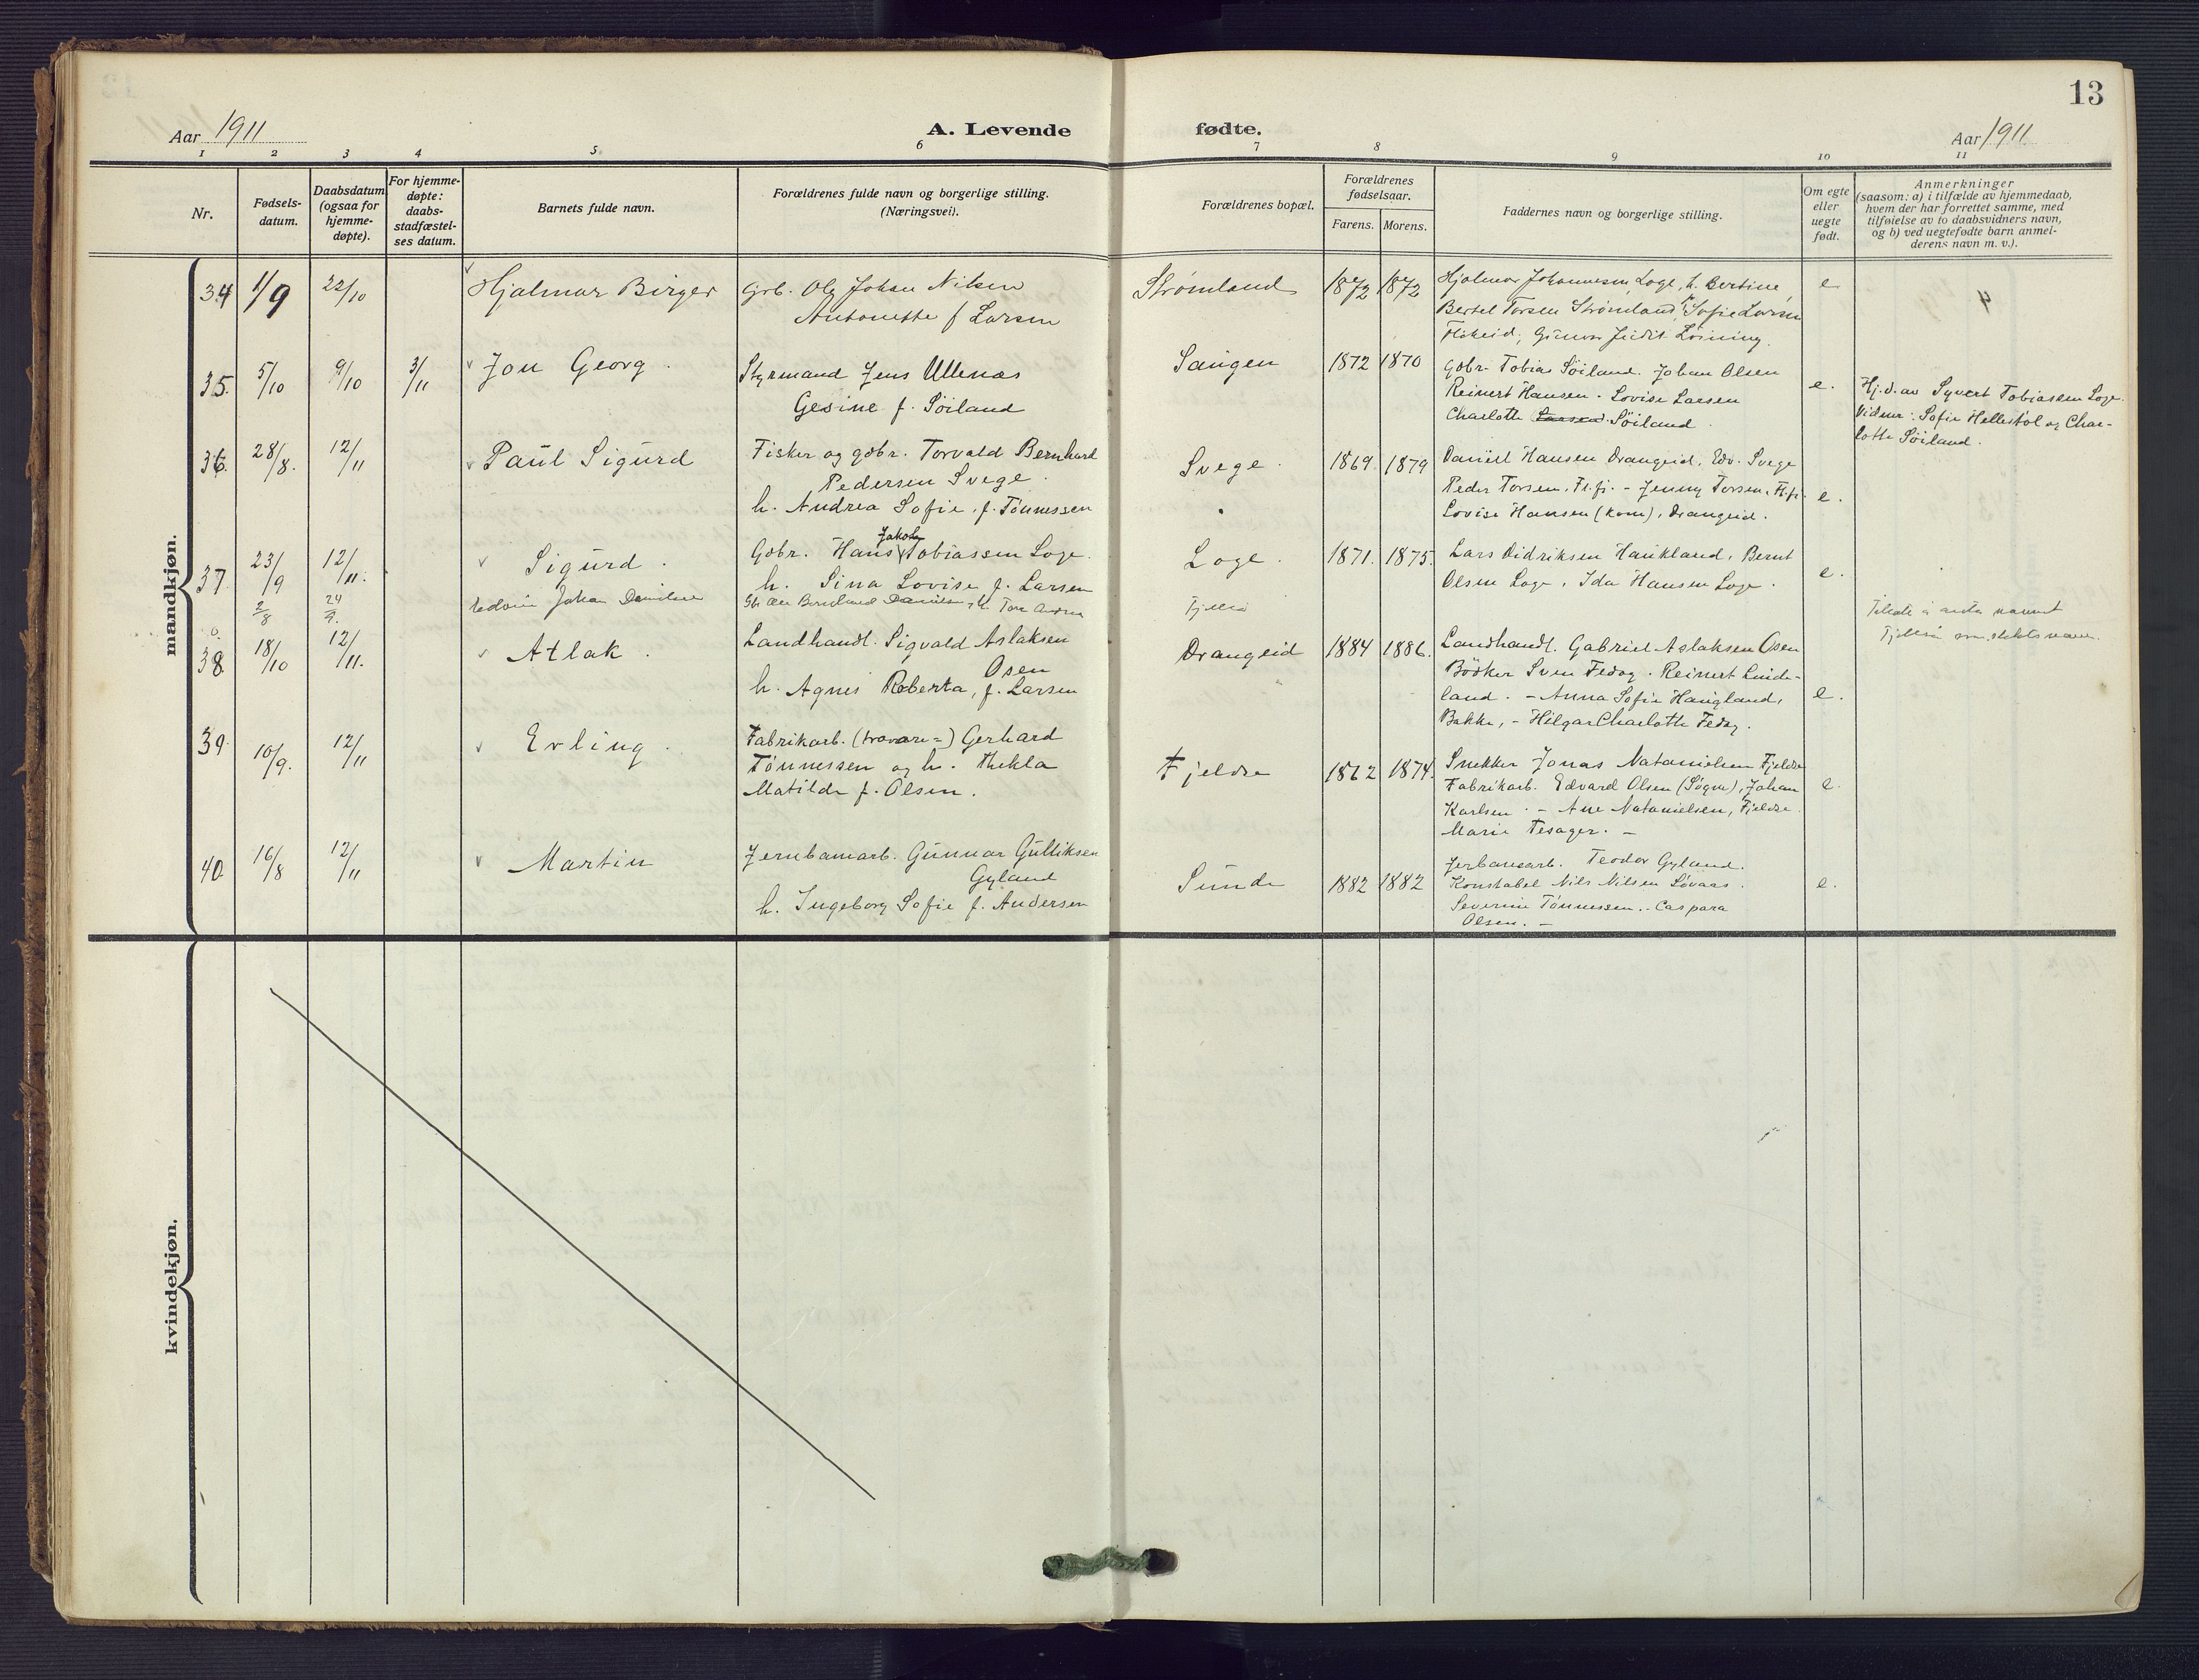 13
Aar 1911
A. Levende fødte.
Aar 1911
1 2 3 4 5 6 7 8 9 10 11
Nr.
Fødsels-
datum.
Daabsdatum
(ogsaa for
hjemme-
døpte).
For hjemme-
døpte:
daabs-
stadfæstel-
ses datum.
Barnets fulde navn.
Forældrenes fulde navn og borgerlige stilling.
(Næringsvei).
Forældrenes bopæl.
Forældrenes
fødselsaar.
Farens. Morens.
Faddernes navn og borgerlige stilling.
Om egte
eller
uegte
født.
Anmerkninger
(saasom: a) i tilfælde av hjemmedaab,
hvem der har forrettet samme, med
tilføielse av to daabsvidners navn,
og b) ved uegtefødte barn anmel-
derens navn m. v.).
mandkjøn.
34 1/9 22/10 Hjalmar Birger
Grb. Ole Johan Nilsen
Antonette f Larsen
Strømland 1872 1872
Hjalmar Johannesen Loge, h. Bertine,
Bertel Torsen Strømland, Sofie Larsen
Flikeid, Gunvor Judit Løining.
e
35. 5/10 9/10 3/11 Jon Georg.
Styrmand Jens Ullenæs
Gesine f. Søiland
Saugen 1872 1870
Gdbr. Tobias Søiland. Johan Olsen
Reinert Hansen. Lovise Larsen
Charlotte Larsen Søiland.
e.
Hj.d. av Syvert Tobiassen Loge.
Vidner: Sofie Hellestøl og Char-
lotte Søiland.
36. 28/8. 12/11 Paul Sigurd
Fisker og gdbr. Torvald Bernhard
Pedersen Svege.
h. Andrea Sofie, f. Tönnessen
Svege. 1869 1879
Daniel Hansen Drangeid, Edv. Svege
Peder Torsen, Fl.fj. - Jenny Torsen, Fl.fj.
Lovise Hansen (kone), Drangeid.
e.
37. 23/9 12/11. Sigurd.
Gdbr. Hans Jakob Tobiassen Loge.
h. Sina Lovise f. Larsen
Loge. 1871. 1875.
Lars Didriksen Haukland, Bernt
Olsen Loge, Ida Hansen Loge.
e.
2/8 24/9. Edvin Johan Danielsen
Tjelle
38 18/10 12/11. Atlak.
Landhandl. Sigvald Aslaksen
Osen
h. Agnes Roberta, f. Larsen
Drangeid 1884 1886.
Landhandl. Gabriel Aslaksen Osen
Bödker Sven Fedog. Reinert Linde-
land. - Anna Sofie Haugland,
Bakke, - Hilgar Charlotte Fedog.
e.
39. 10/9. 12/11 Erling.
Fabrikarb. (travare=) Gerhard
Tönnessen og h. Thekla
Matilde f. Olsen.
Fjeldse 1862 1874.
Snekker Jonas Natanielsen Fjeldse
Fabrikarb. Edvard Olsen (Søgne), Johan
Karlsen. - Ane Natanielsen, Fjeldse
Marie Tesager. -
e.
40. 16/8 12/11 Martin
Jernbanearb. Gunnar Gulliksen
Gyland
h. Ingeborg Sofie f. Andersen
Sunde 1882 1882
Jerbanearb. Teodor Gyland.
Konstabel Nils Nilsen Løvaas.
Severine Tönnessen. - Caspara
Olsen. -
e.
kvindekjøn.